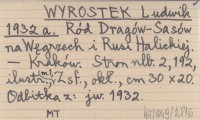 WYROSTEK Ludwik
1932 a. Ród Dragów-Sasów
na Węgrzech i Rusi Halickiej.
— Kraków. Stron nlb. 2, 192,
ilustr., 2 sf., okł., cm 30 x 20.
Odbitka z: jw. 1932.
MT